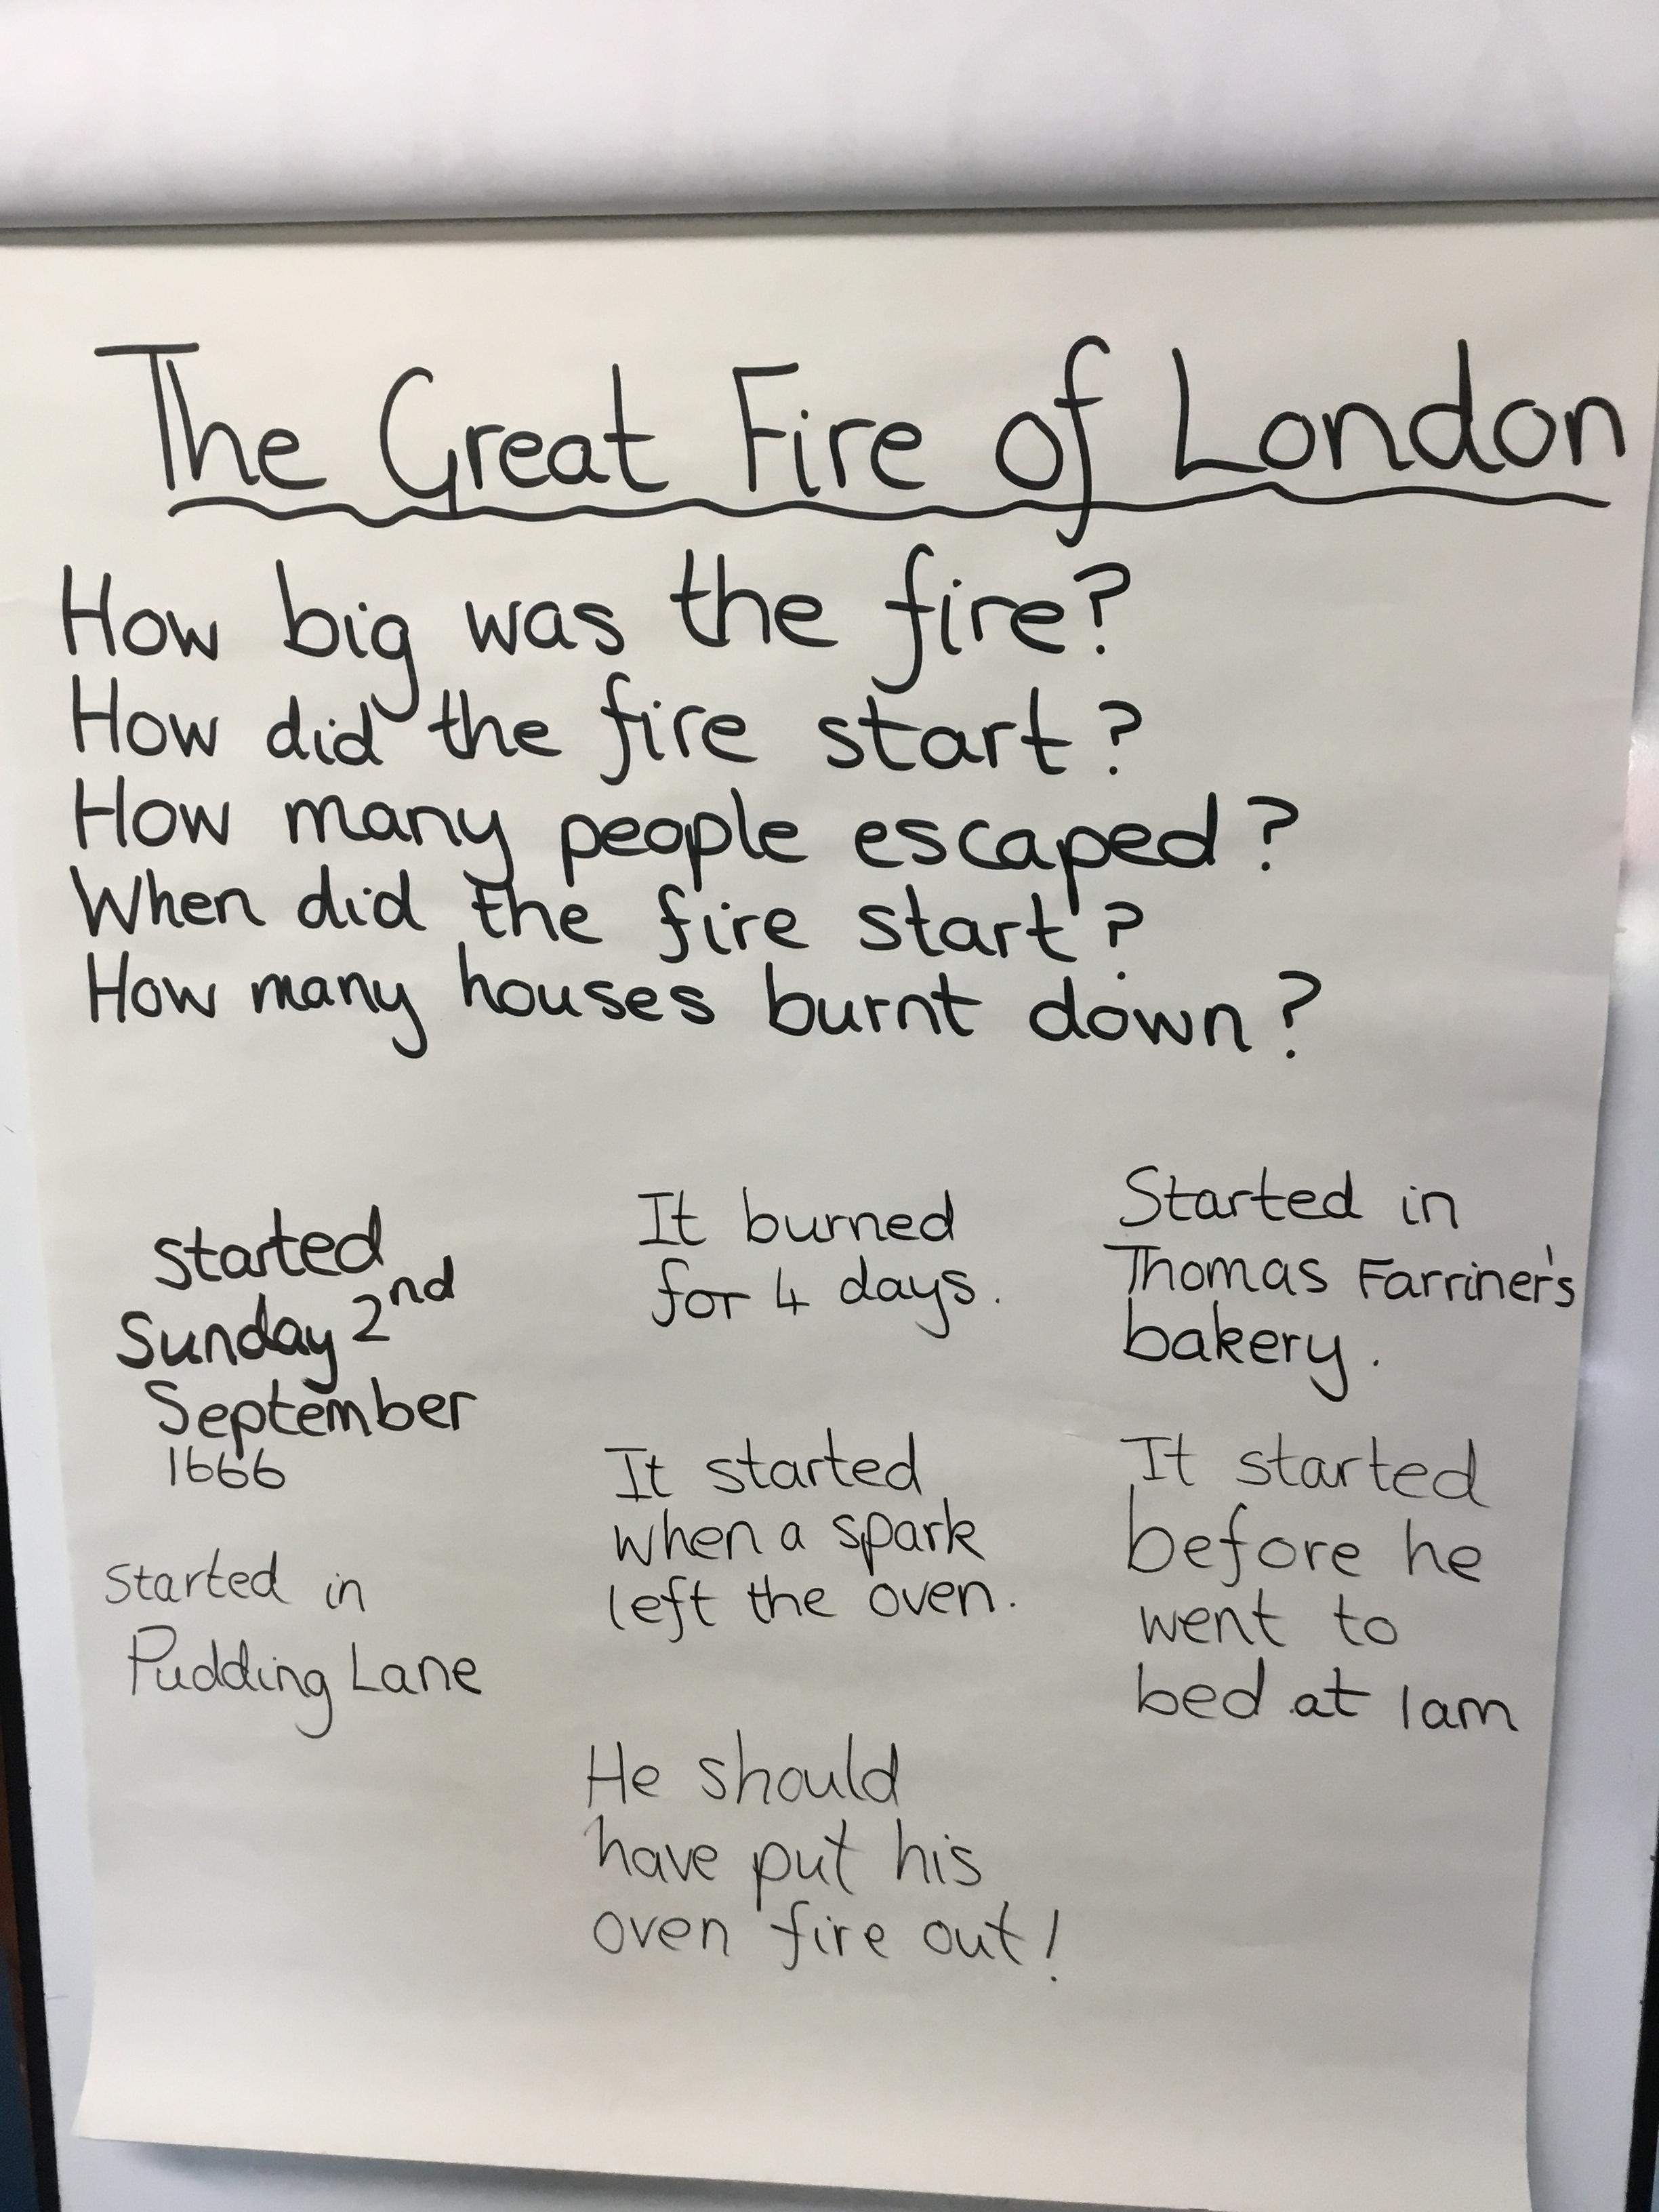 The Great Fire of London
How big was the fire?
How did the fire start?
How many people escaped?
When did the fire start?
How many houses burnt down?
started
Sunday 2nd
September
1666
Started in
Pudding Lane
It burned
for 4 days.
It started
when a spark
left the oven.
He should
have put his
oven fire out!
Started in
Thomas Farriner's
bakery.
It started
before he
went to
bed at 1am